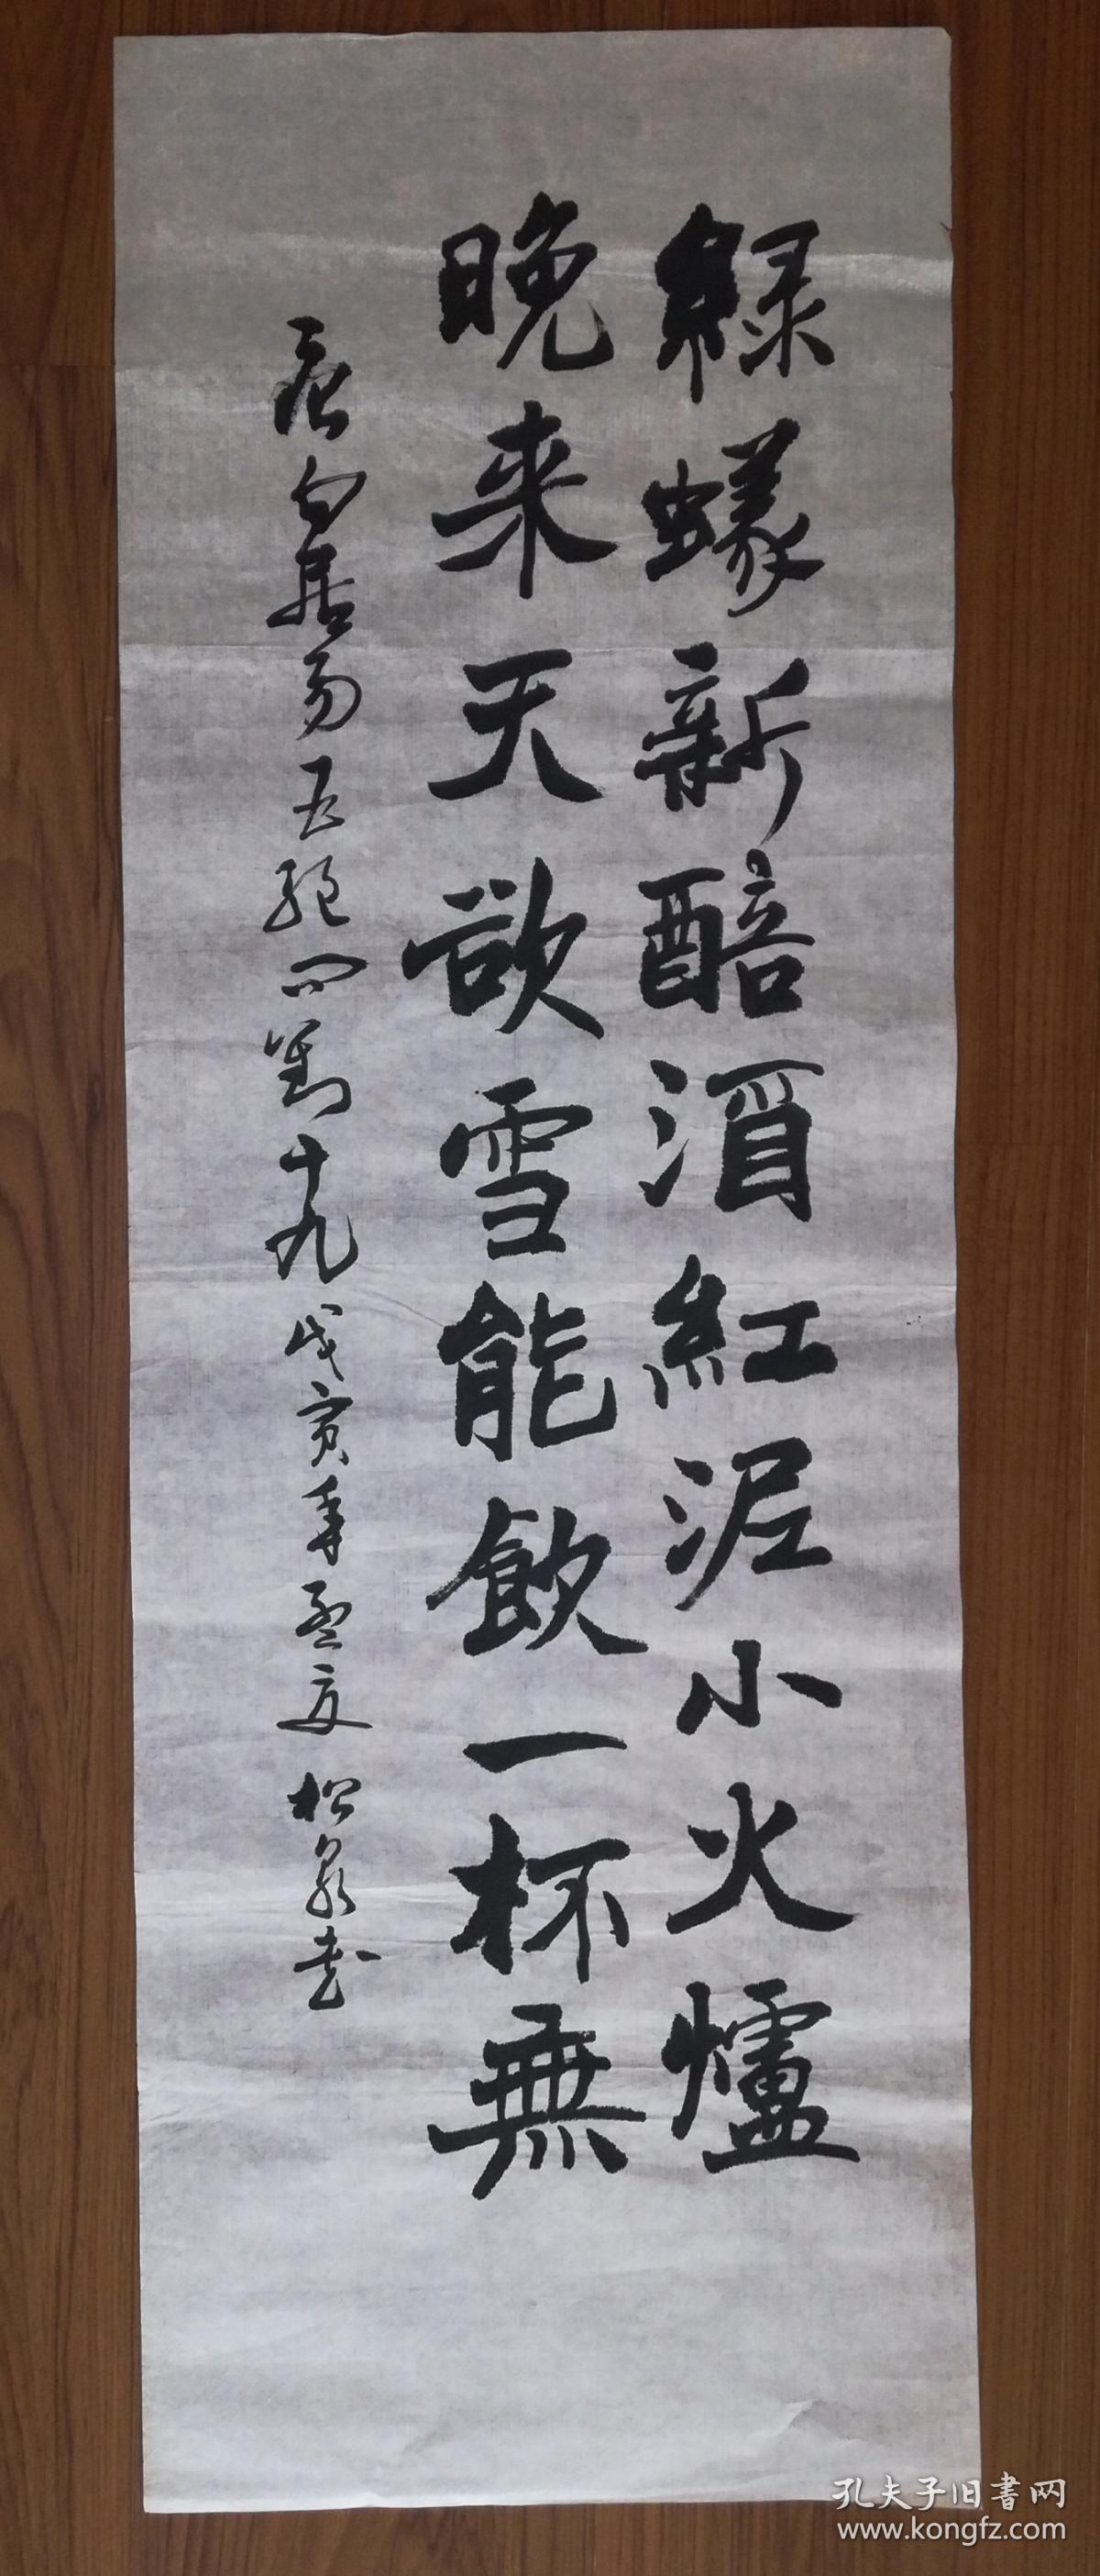 緑蟻新醅酒紅泥小火爐
晚来天欲雪能飲一杯無
唐白居易五絕问劉十九戊寅年孟夏松泉书
孔夫子旧書网
www.kongfz.com